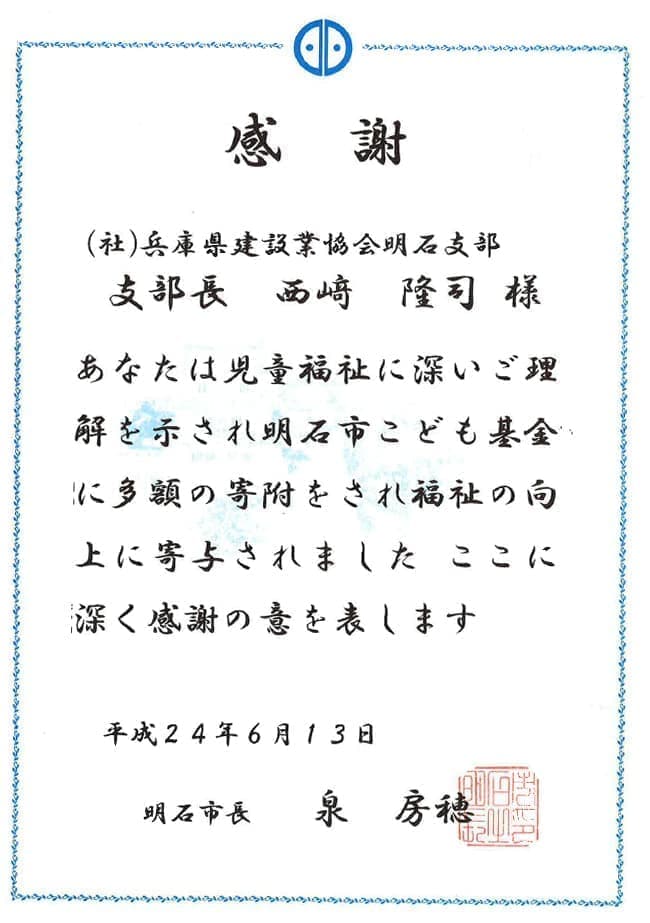 感謝
(社)兵庫県建設業協会明石支部
支部長 西﨑 隆司 様
あなたは児童福祉に深いご理
解を示され明石市こども基金
に多額の寄附をされ福祉の向
上に寄与されました ここに
深く感謝の意を表します
平成24年6月13日
明石市長 泉 房穂